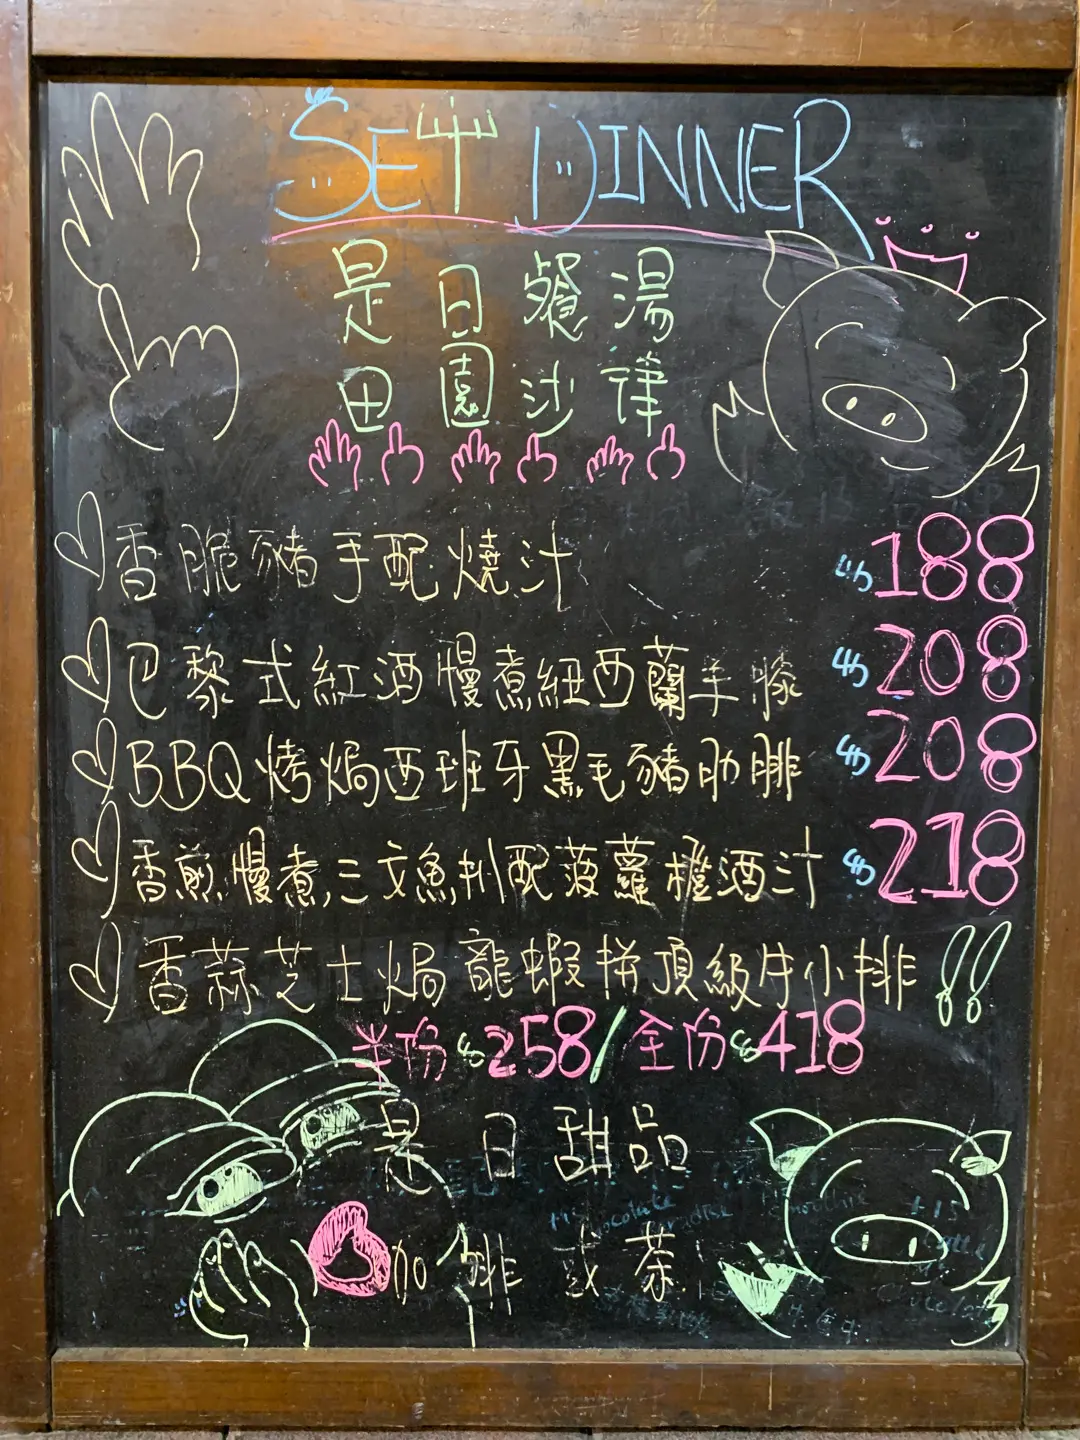 SET DINNER
是日餐湯
田園沙律
香脆豬手配燒汁 $188
巴黎式紅酒慢煮紐西蘭羊膝 $208
BBQ烤焗西班牙黑毛豬肋排 $208
香煎慢煮三文魚扒配菠蘿橙酒汁 $218
香蒜芝士焗龍蝦拼頂級牛小排!!
半份$258/全份$418
是日甜品
咖啡 或 茶